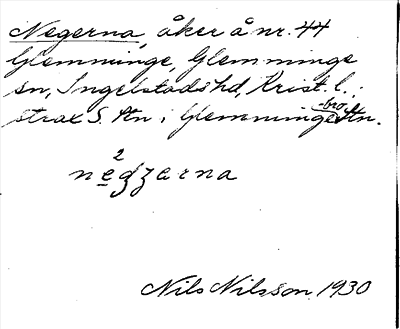 Negerna, åker å nr. 44
Glemminge, Glemminge
sn, Ingelstads hd, Krist. l.;
strax S. Stn i Glemminge-bro Stn.
ne²gzerna
Nils Nilsson 1930